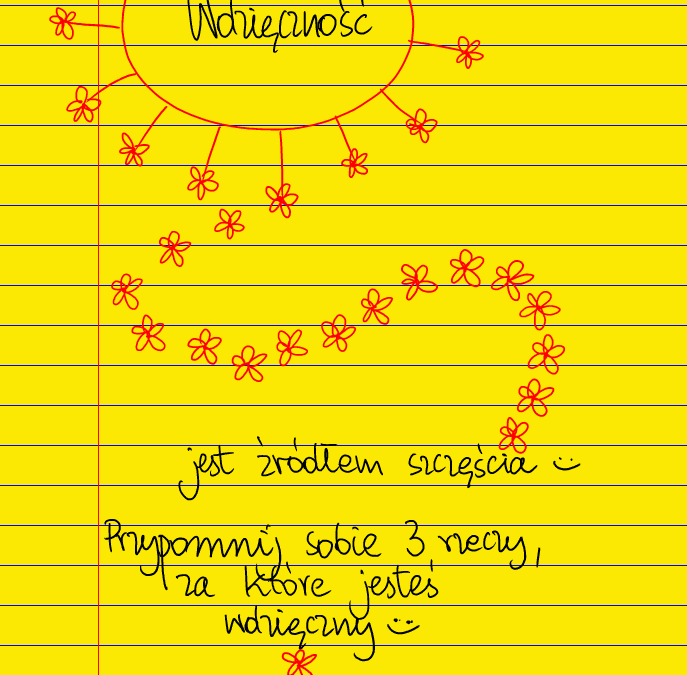 Wdzięczność
jest źródłem szczęścia :)
Przypomnij sobie 3 rzeczy,
za które jesteś
wdzięczny :)